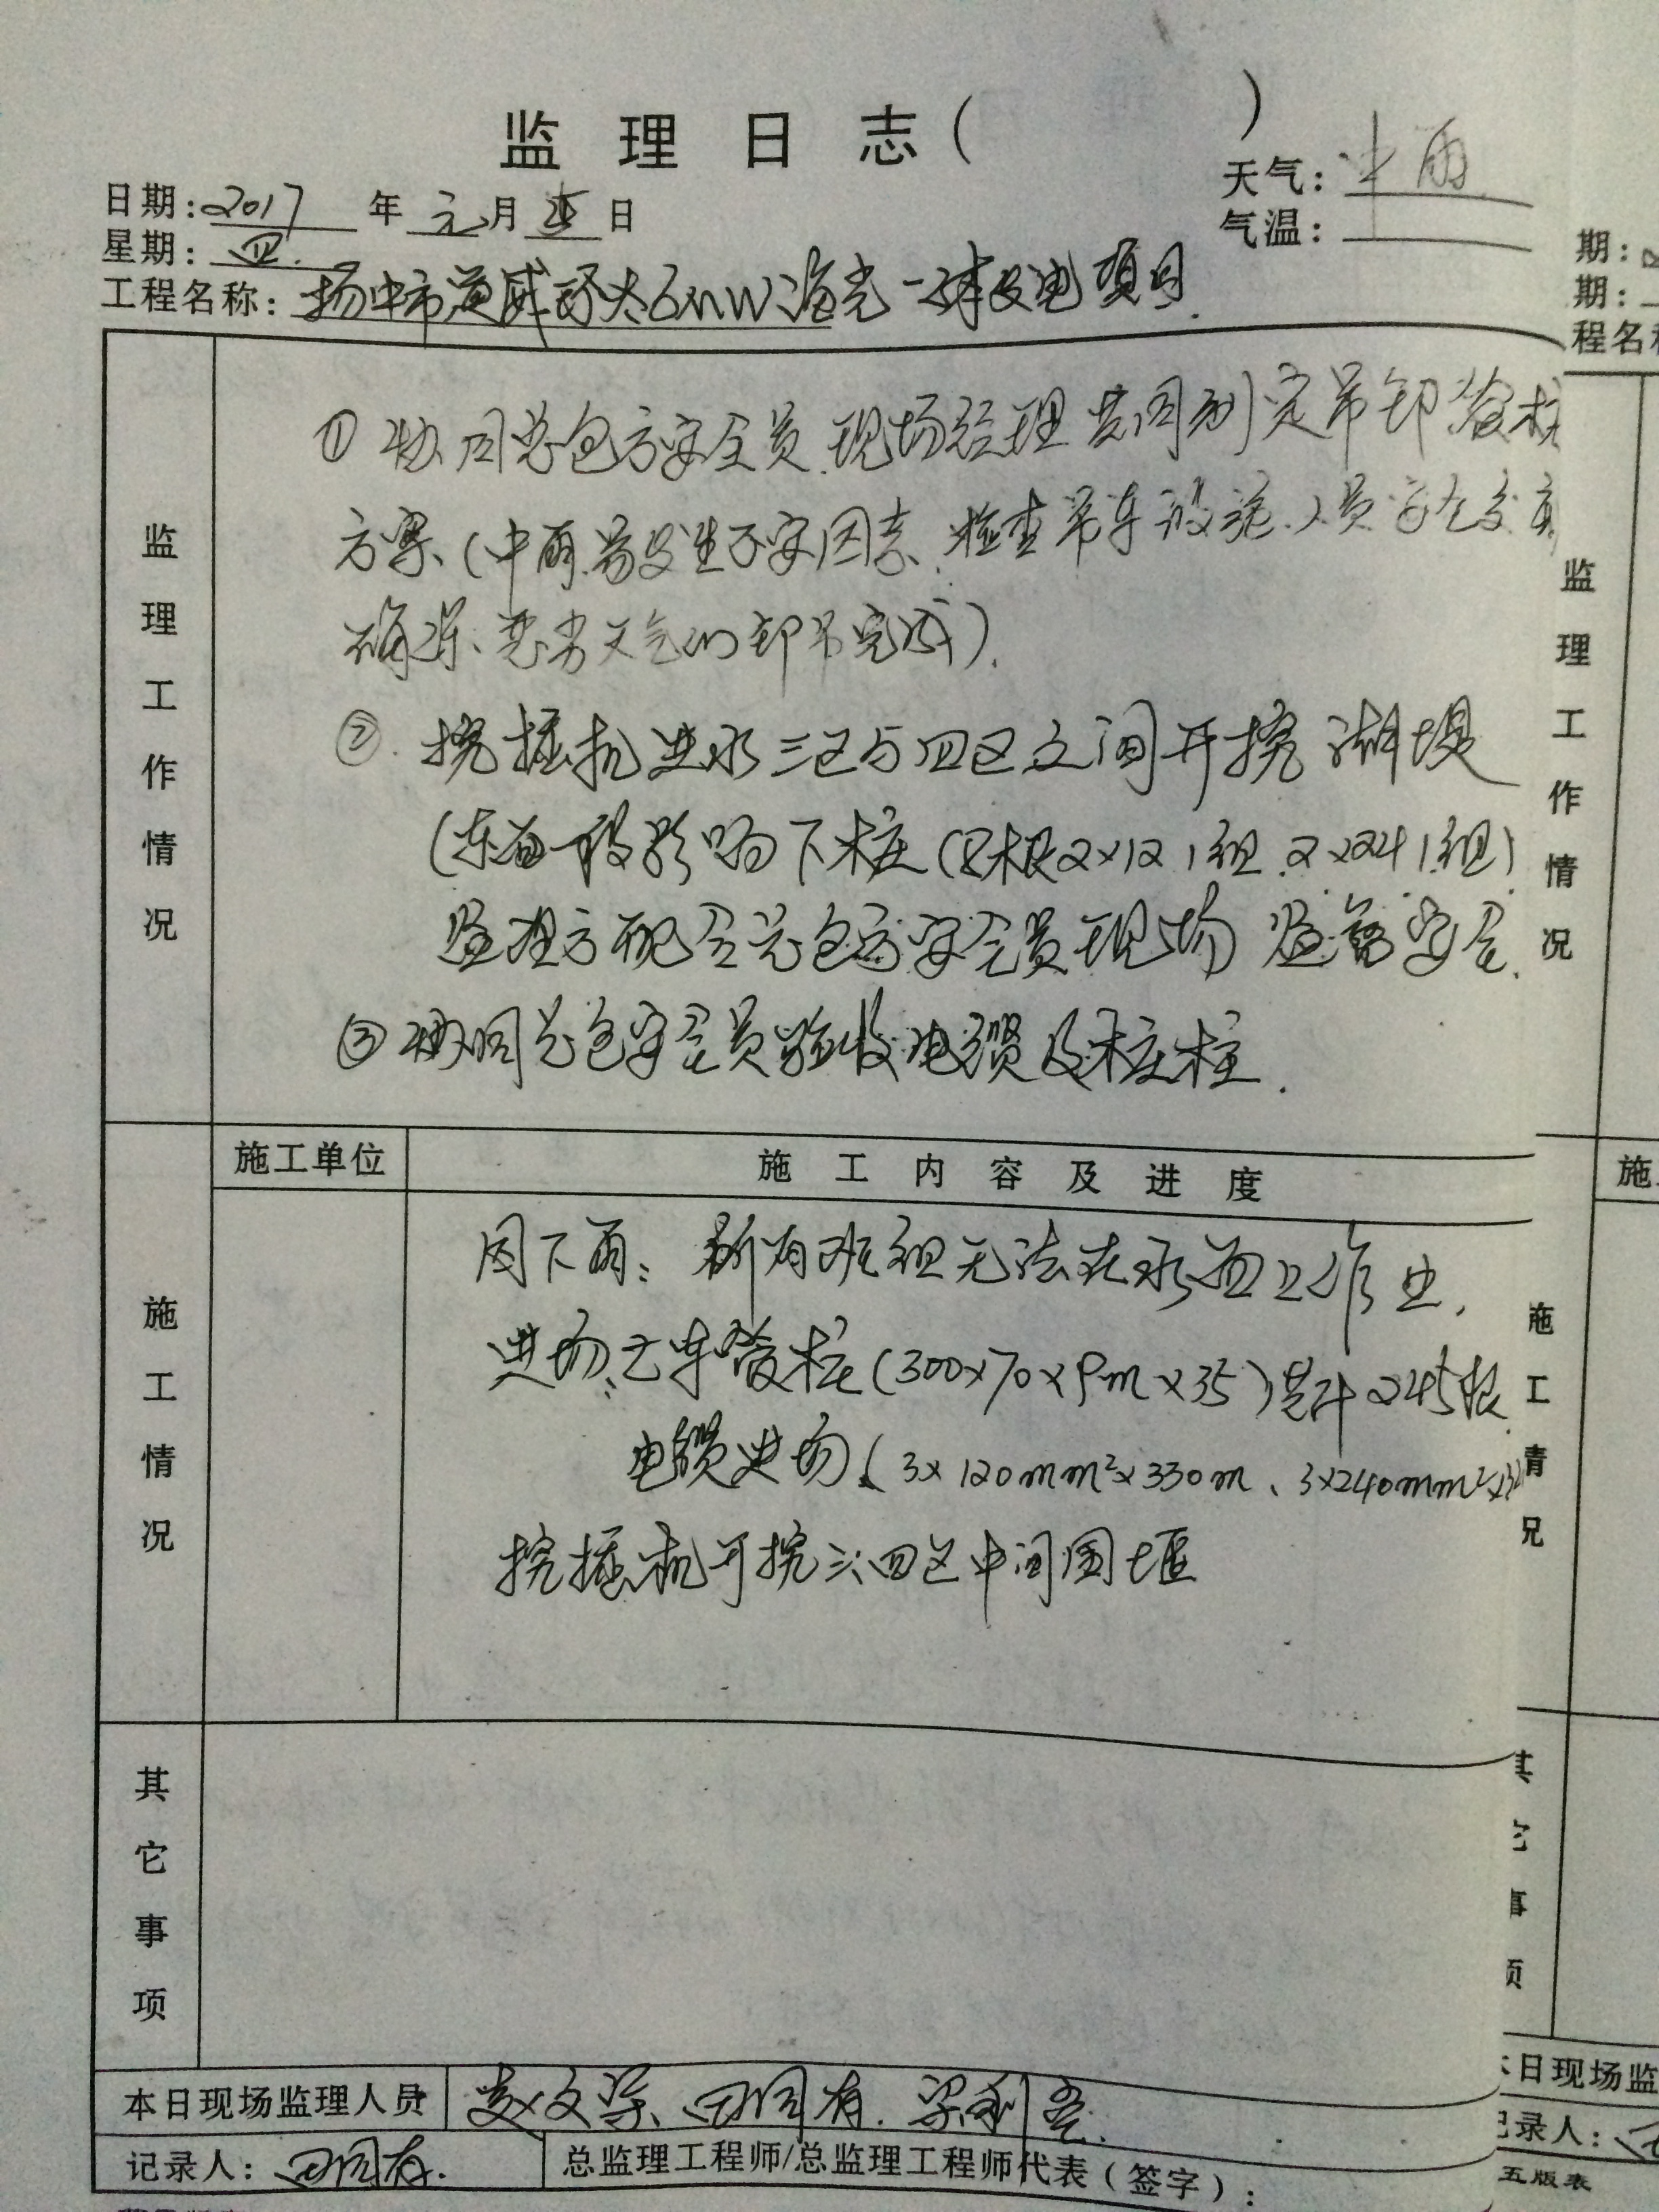 监理日志(　　　)
天气：中雨
日期：2017年元月5日
气温：
星期：四.
工程名称：扬中市 6MW渔光一体发电项目.
监理工作情况
①协同总包方安全员.现场经理共同制定吊卸管桩
方案.(中雨.易发生不安因素.检查吊车设施.人员安全交底
确保.恶劣天气的卸吊完成).
②.挖掘机进水三区与四区之间开挖湖堤
(东面一段影响下桩(8根2×12 1组.2×24 1组)
监理方配合总包方安全员现场监督安全.
③协同总包安全员验收电缆及桩柱.
施工单位
施工内容及进度
施工情况
因下雨：所有班组无法在水面上作业,
进场七车管桩(300×70×9m×35)共计245根
电缆进场(3×120mm²×330m、3×240mm²×
挖掘机开挖三.四区中间围堰
其它事项
本日现场监理人员
文梁、田同有.梁利
记录人：田同有.
总监理工程师/总监理工程师代表(签字)：
期：
期：
程名称
监理工作情况
施
施工情况
其它事项
本日现场监
记录人：
五版表